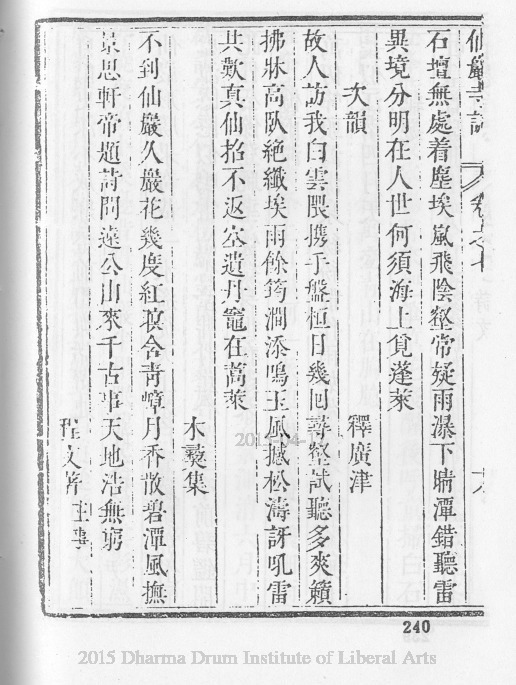 仙巖寺志 卷之七
石壇無處着塵埃嵐飛陰壑常疑雨瀑下晴潭錯聽雷
異境分明在人世何須海上覓蓬萊
次韻 釋廣津
故人訪我白雲隈携手盤桓日幾囘尋壑試聽多爽籟
拂牀高臥絶纖埃雨餘筠澗添鳴玉風撼松濤訝吼雷
共歎真仙招不返空遺丹竈在蒿萊
木蘷集
不到仙巖久巖花幾度紅猿含青嶂月香散碧潭風撫
景思軒帝題詩問遠公山來千古事天地浩無窮
程文著
240
2015 Dharma Drum Institute of Liberal Arts